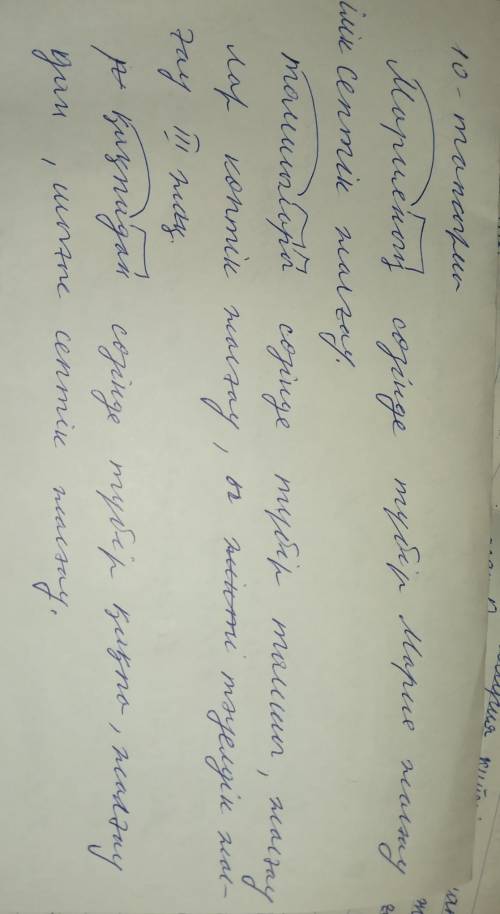 10 - тапсырма
Марияның сөзінде түбір Мария жалғау
ілік септік жалғау.
тамшылары сөзінде түбір тамшы, жалғау
лар көптік жалғау, ы жинті тәуелдік жал-
ғау III жақ.
сөзінде түбір қиқпа, жалғау
дан, шығыс септік жалғау.